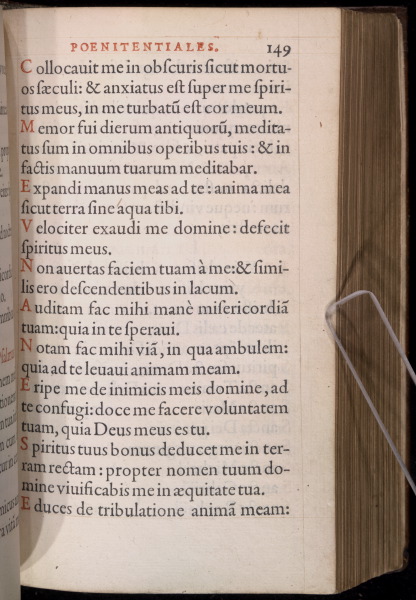 POENITENTIALES. 149
Collocauit me in obſcuris ſicut mortu-
os ſæculi: & anxiatus eſt ſuper me ſpiri-
tus meus, in me turbatũ eſt cor meum.
Memor fui dierum antiquorũ, medita-
tus ſum in omnibus operibus tuis: & in
factis manuum tuarum meditabar.
Expandi manus meas ad te: anima mea
ſicut terra ſine aqua tibi.
Velociter exaudi me domine: defecit
ſpiritus meus.
Non auertas faciem tuam à me:& ſimi-
lis ero deſcendentibus in lacum.
Auditam fac mihi manè miſericordiã
tuam:quia in te ſperaui.
Notam fac mihi viã, in qua ambulem:
quia ad te leuaui animam meam.
Eripe me de inimicis meis domine, ad
te confugi: doce me facere voluntatem
tuam, quia Deus meus es tu.
Spiritus tuus bonus deducet me in ter-
ram rectam: propter nomen tuum do-
mine viuificabis me in æquitate tua.
Educes de tribulatione animã meam: